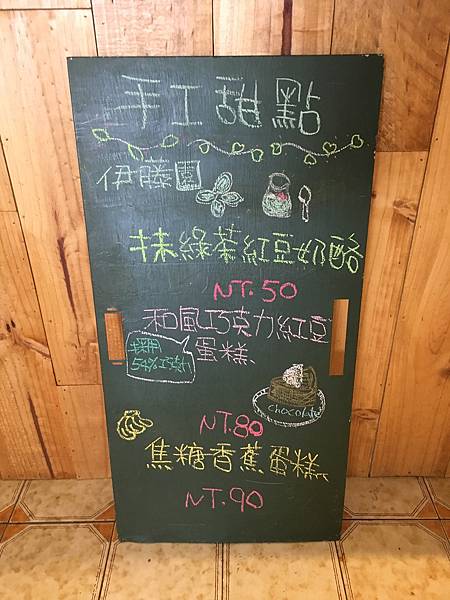 手工甜點
伊藤園
抹綠茶紅豆奶酪
NT.50
和風巧克力紅豆
蛋糕
採用
54%巧克力
chocolate
NT.80
焦糖香蕉蛋糕
NT.90